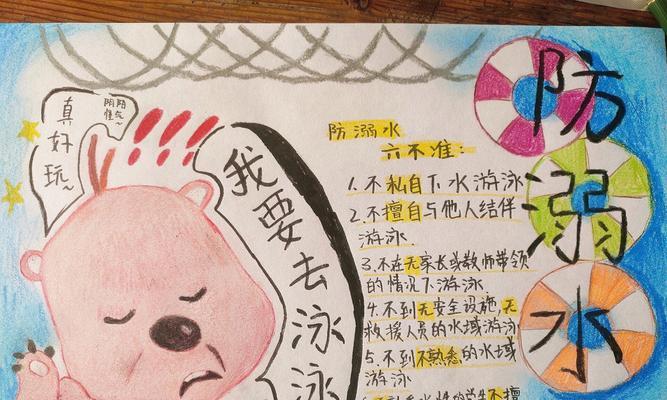 防溺水
真好玩~
我要去泳泳
防溺水
六不准:
1.不私自下水游泳
2.不擅自与他人结伴
游泳.
3.不在无家长或教师带领
的情况下游泳
4.不到无安全设施,无
救援人员的水域游泳
5.不到不熟悉的水域
游泳